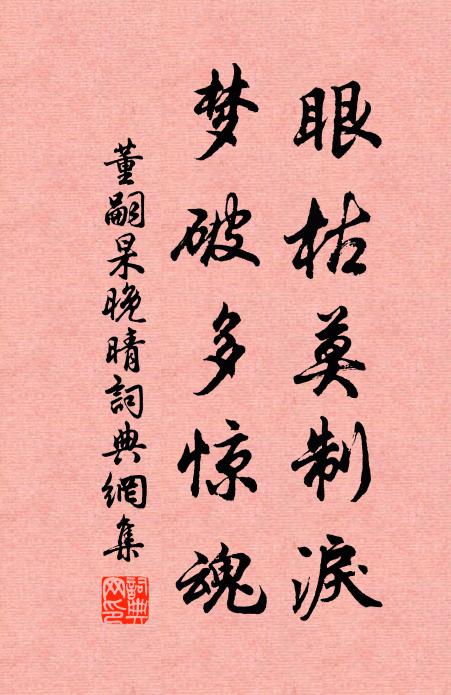 眼枯莫制淚
梦破多惊魂
董嗣杲晚晴詞典網集
詞典网印